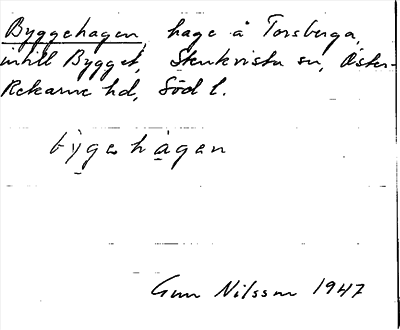 Byggehagen, hage å Torsberga,
intill Bygget, Stenkvista sn, Öster-
Rekarne hd, Södl.
bỳgehagen
Gun Nilsson 1947